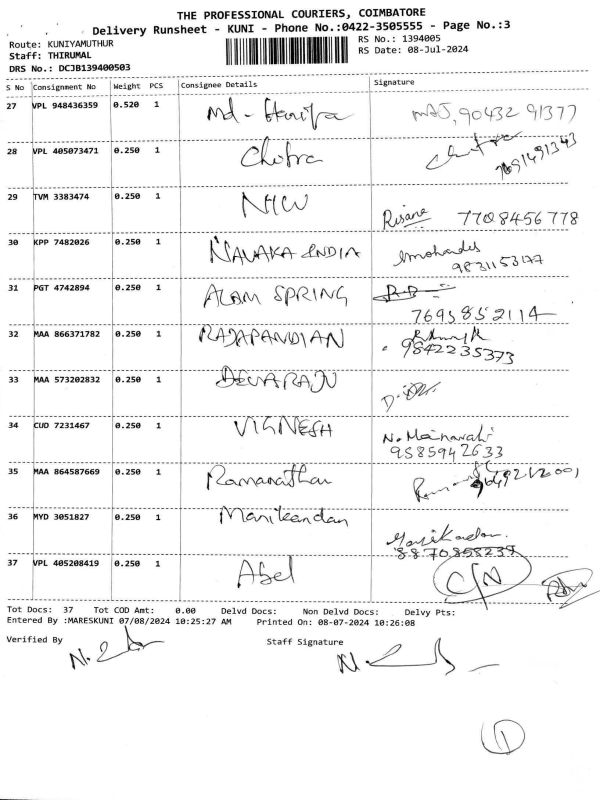 THE PROFESSIONAL COURIERS, COIMBATORE
Delivery Runsheet - KUNI - Phone No.:0422-3505555 - Page No.:3
Route: KUNIYAMUTHUR
RS No.: 1394005
Staff: THIRUMAL
RS Date: 08-Jul-2024
DRS No.: DCJB139400503
S No Consignment No Weight PCS Consignee Details Signature
27 VPL 948436359 0.520 1 Md - Hanifa 90432 91377
28 VPL 405073471 0.250 1 Chitra Chitra
29 TVM 3383474 0.250 1 Risane 7708456778
30 KPP 7482026 0.250 1 NAVAKA INDIA
9831153177
31 PGT 4742894 0.250 1 ALAM SPRING
7695852114
32 MAA 866371782 0.250 1 RAJAPANDIAN
9842235373
33 MAA 573202832 0.250 1 DEVARAJU
34 CUD 7231467 0.250 1 VIGNESH N.
9585942633
35 MAA 864587669 0.250 1 Ramanathan
36 MYD 3051827 0.250 1 Manikandan
8870858239
37 VPL 405208419 0.250 1 Abel C/N
Tot Docs: 37 Tot COD Amt: 0.00 Delvd Docs: Non Delvd Docs: Delvy Pts:
Entered By :MARESKUNI 07/08/2024 10:25:27 AM Printed On: 08-07-2024 10:26:08
Verified By Staff Signature
1